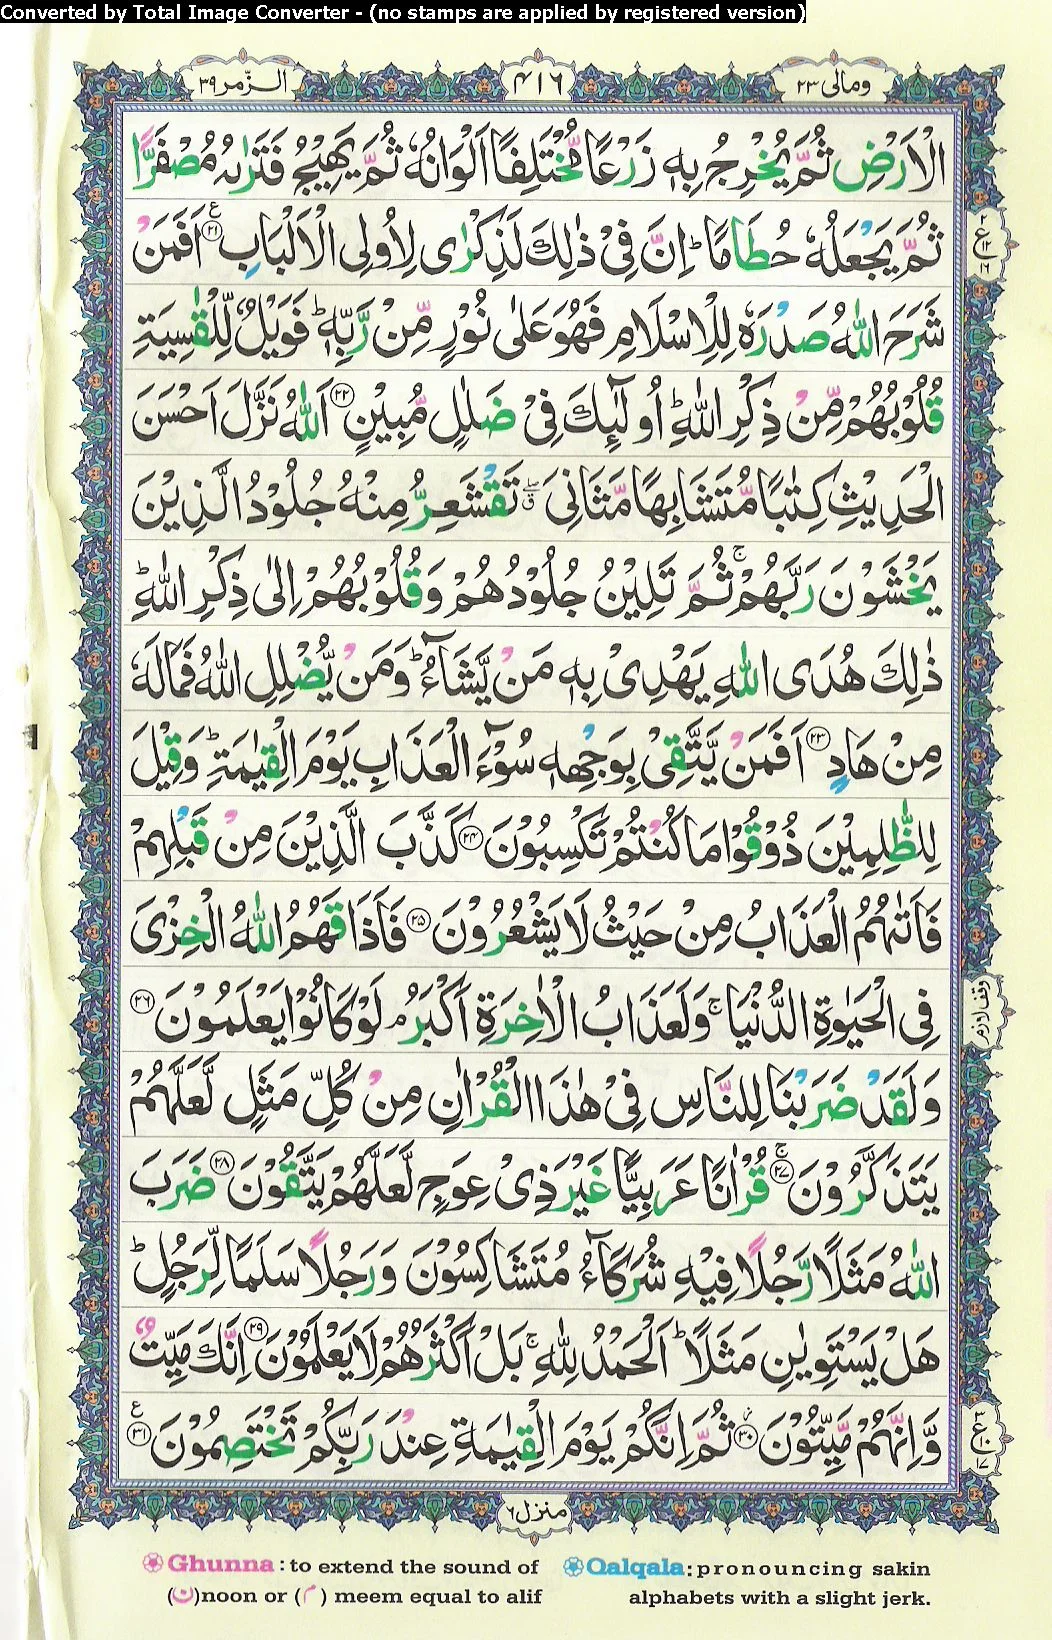 Converted by Total Image Converter - (no stamps are applied by registered version)
الزّمر ٣٩
٤١٦
ومالی ٢٣
الْاَرْضِ ثُمَّ يُخْرِجُ بِهٖ زَرْعًا مُّخْتَلِفًا اَلْوَانُهٗ ثُمَّ يَهِيْجُ فَتَرٰىهُ مُصْفَرًّا
ثُمَّ يَجْعَلُهٗ حُطَامًا ؕ اِنَّ فِىْ ذٰلِكَ لَذِكْرٰى لِاُولِى الْاَلْبَابِ ﴿٢١﴾ اَفَمَنْ
شَرَحَ اللّٰهُ صَدْرَهٗ لِلْاِسْلَامِ فَهُوَ عَلٰى نُوْرٍ مِّنْ رَّبِّهٖ ؕ فَوَيْلٌ لِّلْقٰسِيَةِ
قُلُوْبُهُمْ مِّنْ ذِكْرِ اللّٰهِ ؕ اُولٰٓئِكَ فِىْ ضَلٰلٍ مُّبِيْنٍ ﴿٢٢﴾ اَللّٰهُ نَزَّلَ اَحْسَنَ
الْحَدِيْثِ كِتٰبًا مُّتَشَابِهًا مَّثَانِىَ ۖق تَقْشَعِرُّ مِنْهُ جُلُوْدُ الَّذِيْنَ
يَخْشَوْنَ رَبَّهُمْ ۚ ثُمَّ تَلِيْنُ جُلُوْدُهُمْ وَقُلُوْبُهُمْ اِلٰى ذِكْرِ اللّٰهِ ؕ
ذٰلِكَ هُدَى اللّٰهِ يَهْدِىْ بِهٖ مَنْ يَّشَآءُ ؕ وَمَنْ يُّضْلِلِ اللّٰهُ فَمَا لَهٗ
مِنْ هَادٍ ﴿٢٣﴾ اَفَمَنْ يَّتَّقِىْ بِوَجْهِهٖ سُوْٓءَ الْعَذَابِ يَوْمَ الْقِيٰمَةِ ؕ وَقِيْلَ
لِلظّٰلِمِيْنَ ذُوْقُوْا مَا كُنْتُمْ تَكْسِبُوْنَ ﴿٢٤﴾ كَذَّبَ الَّذِيْنَ مِنْ قَبْلِهِمْ
فَاَتٰىهُمُ الْعَذَابُ مِنْ حَيْثُ لَا يَشْعُرُوْنَ ﴿٢٥﴾ فَاَذَاقَهُمُ اللّٰهُ الْخِزْىَ
فِى الْحَيٰوةِ الدُّنْيَا ۚ وَلَعَذَابُ الْاٰخِرَةِ اَكْبَرُ ۘ لَوْ كَانُوْا يَعْلَمُوْنَ ﴿٢٦﴾
وَلَقَدْ ضَرَبْنَا لِلنَّاسِ فِىْ هٰذَا الْقُرْاٰنِ مِنْ كُلِّ مَثَلٍ لَّعَلَّهُمْ
يَتَذَكَّرُوْنَ ﴿٢٧﴾ۚ قُرْاٰنًا عَرَبِيًّا غَيْرَ ذِىْ عِوَجٍ لَّعَلَّهُمْ يَتَّقُوْنَ ﴿٢٨﴾ ضَرَبَ
اللّٰهُ مَثَلًا رَّجُلًا فِيْهِ شُرَكَآءُ مُتَشَاكِسُوْنَ وَرَجُلًا سَلَمًا لِّرَجُلٍ ؕ
هَلْ يَسْتَوِيٰنِ مَثَلًا ؕ اَلْحَمْدُ لِلّٰهِ ۚ بَلْ اَكْثَرُهُمْ لَا يَعْلَمُوْنَ ﴿٢٩﴾ اِنَّكَ مَيِّتٌ
وَّاِنَّهُمْ مَّيِّتُوْنَ ﴿٣٠﴾ ثُمَّ اِنَّكُمْ يَوْمَ الْقِيٰمَةِ عِنْدَ رَبِّكُمْ تَخْتَصِمُوْنَ ﴿٣١﴾
٢ ع ١٢ ١٦
وقف لازم
٣ ع ١٠ ١٧
منزل ٦
Ghunna : to extend the sound of
(ن)noon or (م) meem equal to alif
Qalqala: pronouncing sakin
alphabets with a slight jerk.